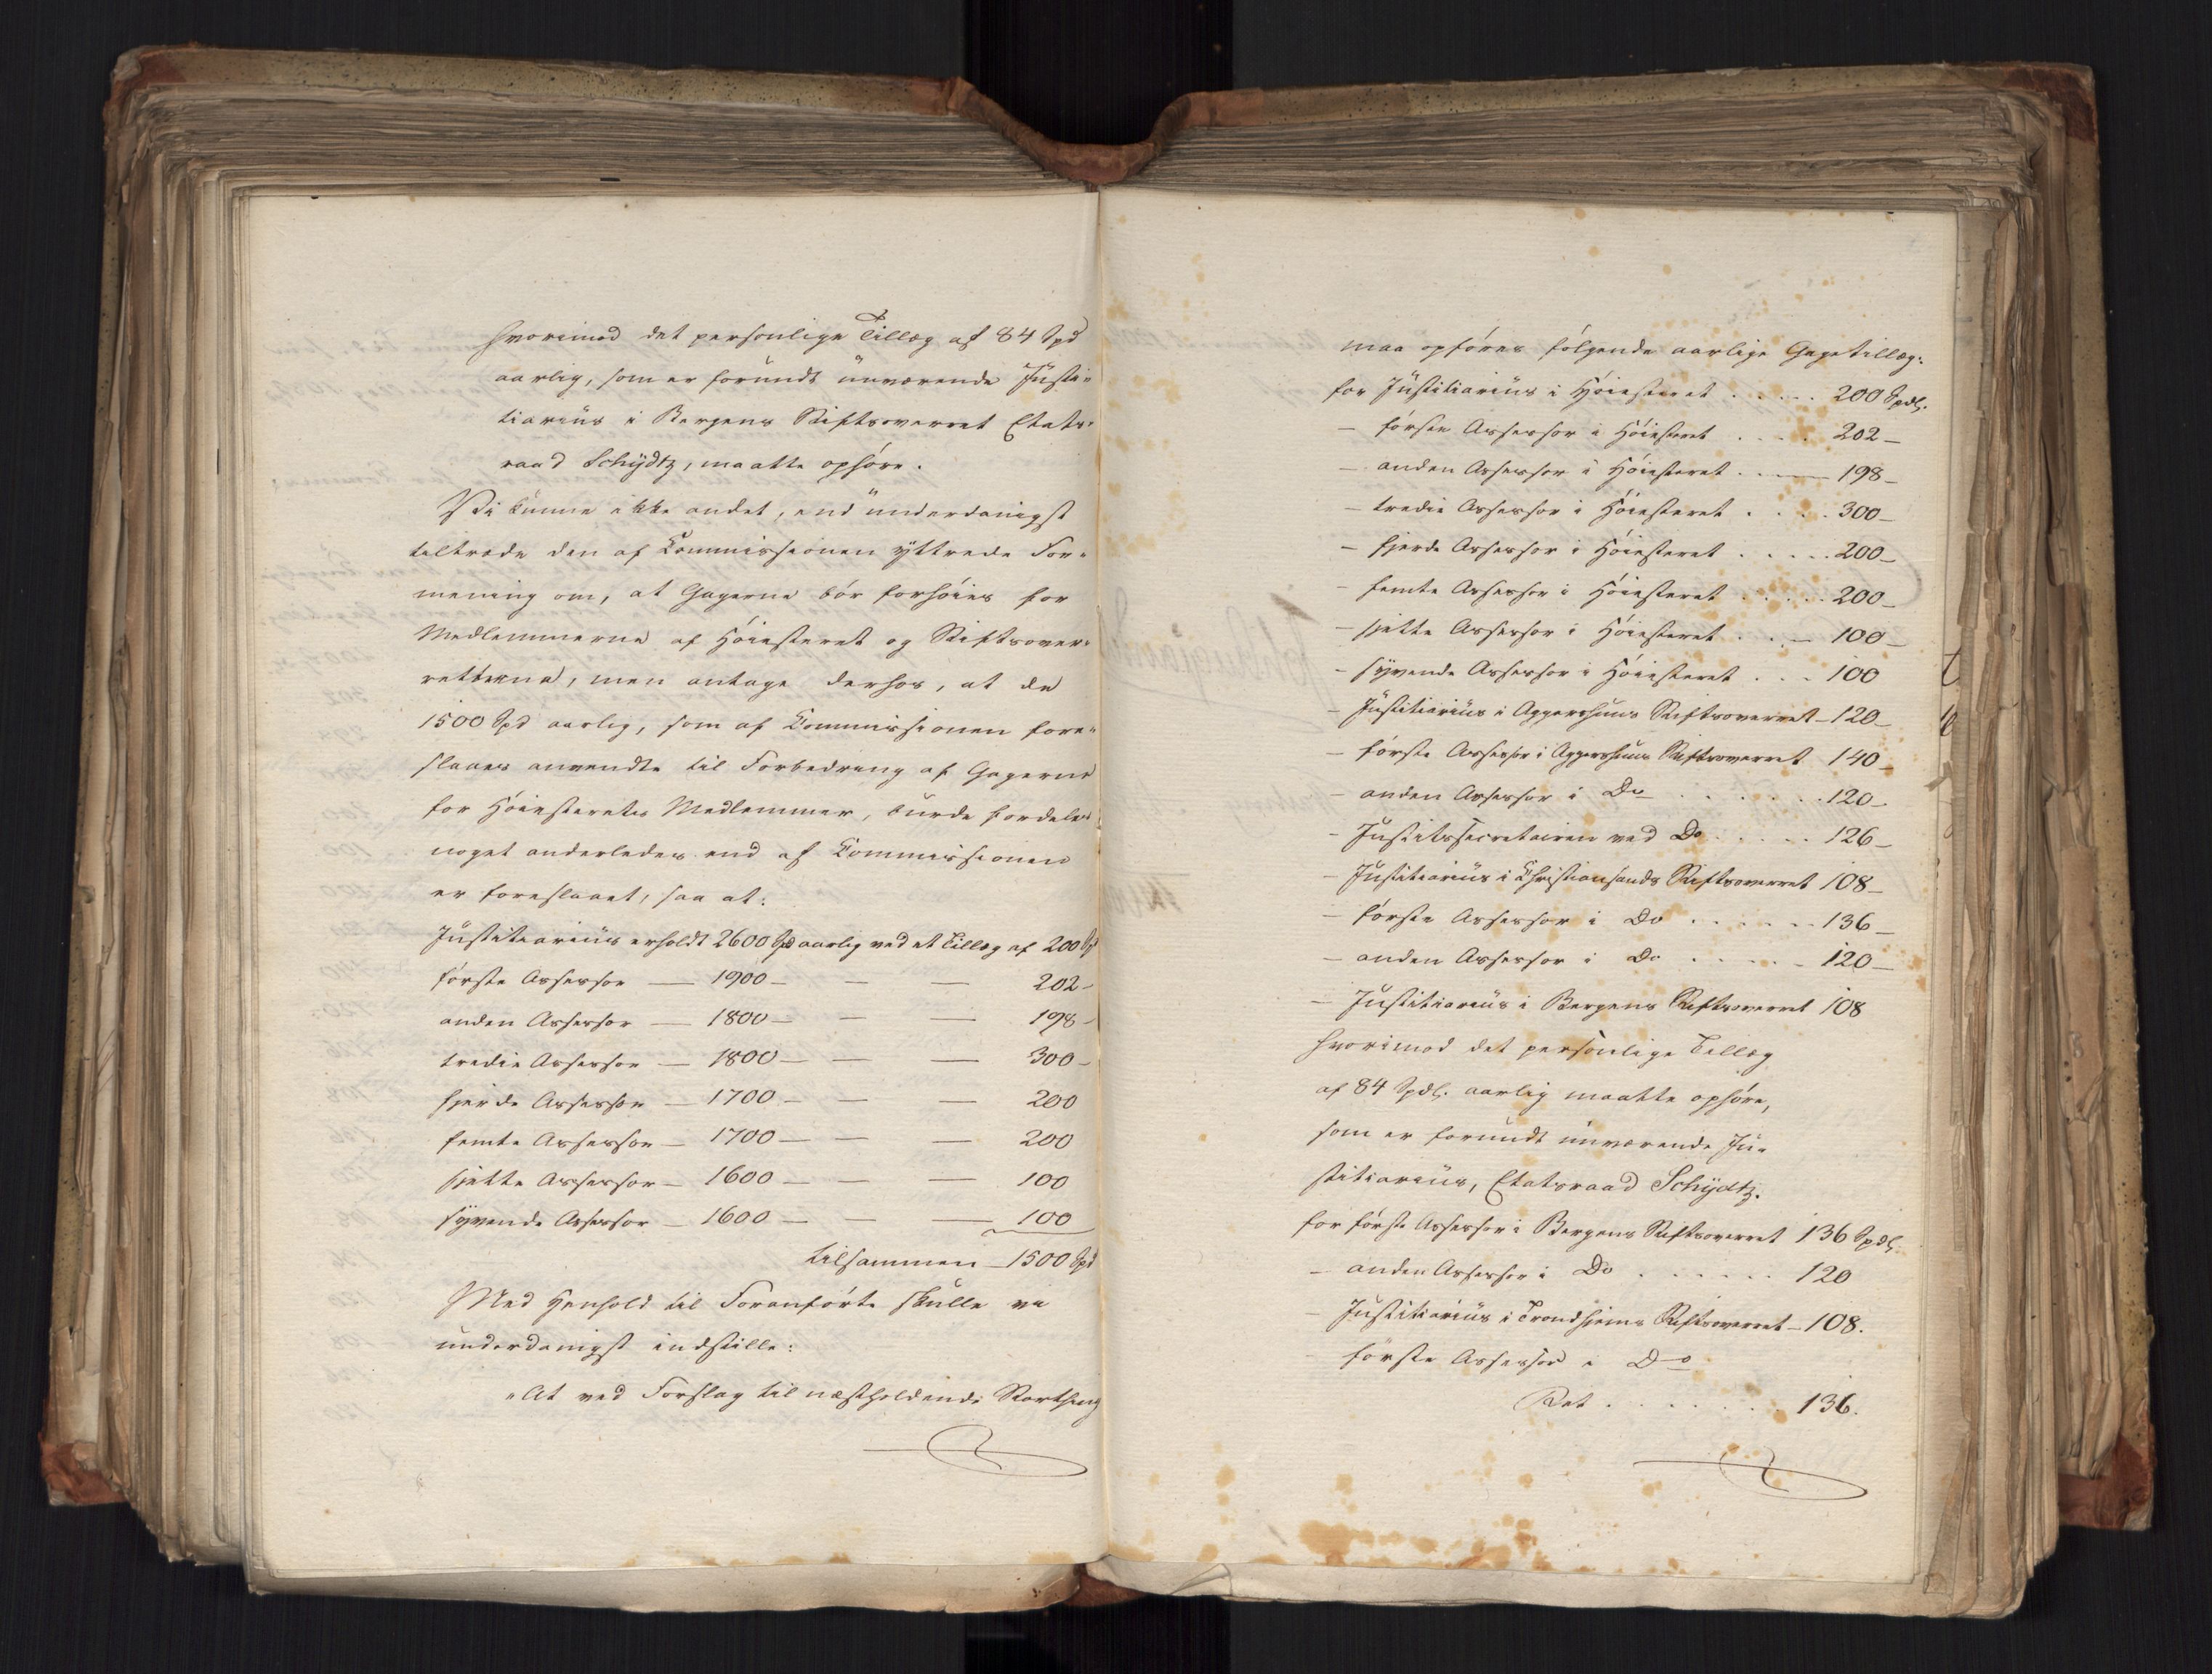 hvorimod det personlige Tillæg af 84 Spd
aarlig, som er forundt nuværende Justi-
tiarius i Bergens Stiftsoverret Etats-
raad Schydtz, maatte ophøre.
Vi kunne ikke andet, end underdanigst
tiltræde den af Commissionen yttrede For-
mening om, at Gagerne bør forhøies for
Medlemmerne af Høiesteret og Stiftsover-
retterne, men antage derhos, at de
1500 Spd aarlig, som af Commissionen fore-
slaaes anvendte til Forbedring af Gagerne
for Høiesterets Medlemmer, burde fordeles
noget anderledes end af Commissionen
er foreslaaet, saa at:
Justitiarius erholdt 2600 Spd aarlig ved et Tillæg af 200 Spd
første Assessor — 1900 — — — 202 -
anden Assessor — 1800 — — — 198 -
tredie Assessor — 1800 — — — 300 -
fjerde Assessor — 1700 — — — 200
femte Assessor — 1700 — — — 200
sjette Assessor — 1600 — — — 100
syvende Assessor — 1600 — — — 100
tilsammen — 1500 Spd
Med Henhold til Foranførte skulle vi
underdanigst indstille:
"At ved Forslag til næstholdende Storthing
maa opføres følgende aarlige Gagetillæg:
for Justitiarius i Høiesteret . . . . . 200 Spdl.
— første Assessor i Høiesteret . . . . 202 —
— anden Assessor i Høiesteret . . — 198 —
— tredie Assessor i Høiesteret . . . . 300 —
— fjerde Assessor i Høiesteret . . . . . 200 —
— femte Assessor i Høiesteret . . . . . 200 —
— sjette Assessor i Høiesteret . . . — 100 —
— syvende Assessor i Høiesteret . . . 100
— Justitiarius i Aggershuus Stiftsoverret — 120 —
— første Assessor i Aggershuus Stiftsoverret 140 —
— anden Assessor i Do . . . . . . . 120 —
— Justitssecretairen ved Do . . . . . 126 —
— Justitiarius i Christiansands Stiftsoverret 108 —
— første Assessor i Do . . . . . . 136 —
— anden Assessor i Do . . . . . 120 —
— Justitiarius i Bergens Stiftsoverret 108
hvorimod det personlige Tillæg
af 84 Spdl. aarlig maatte ophøre,
som er forundt nuværende Ju-
stitiarius, Etatsraad Schydtz.
for første Assessor i Bergens Stiftsoverret 136 Spdl.
— anden Assessor i Do . . . . . . 120
— Justitiarius i Trondhjems Stiftsoverret — 108.
— første Assessor i Do
Ret . . . . . . . 136.